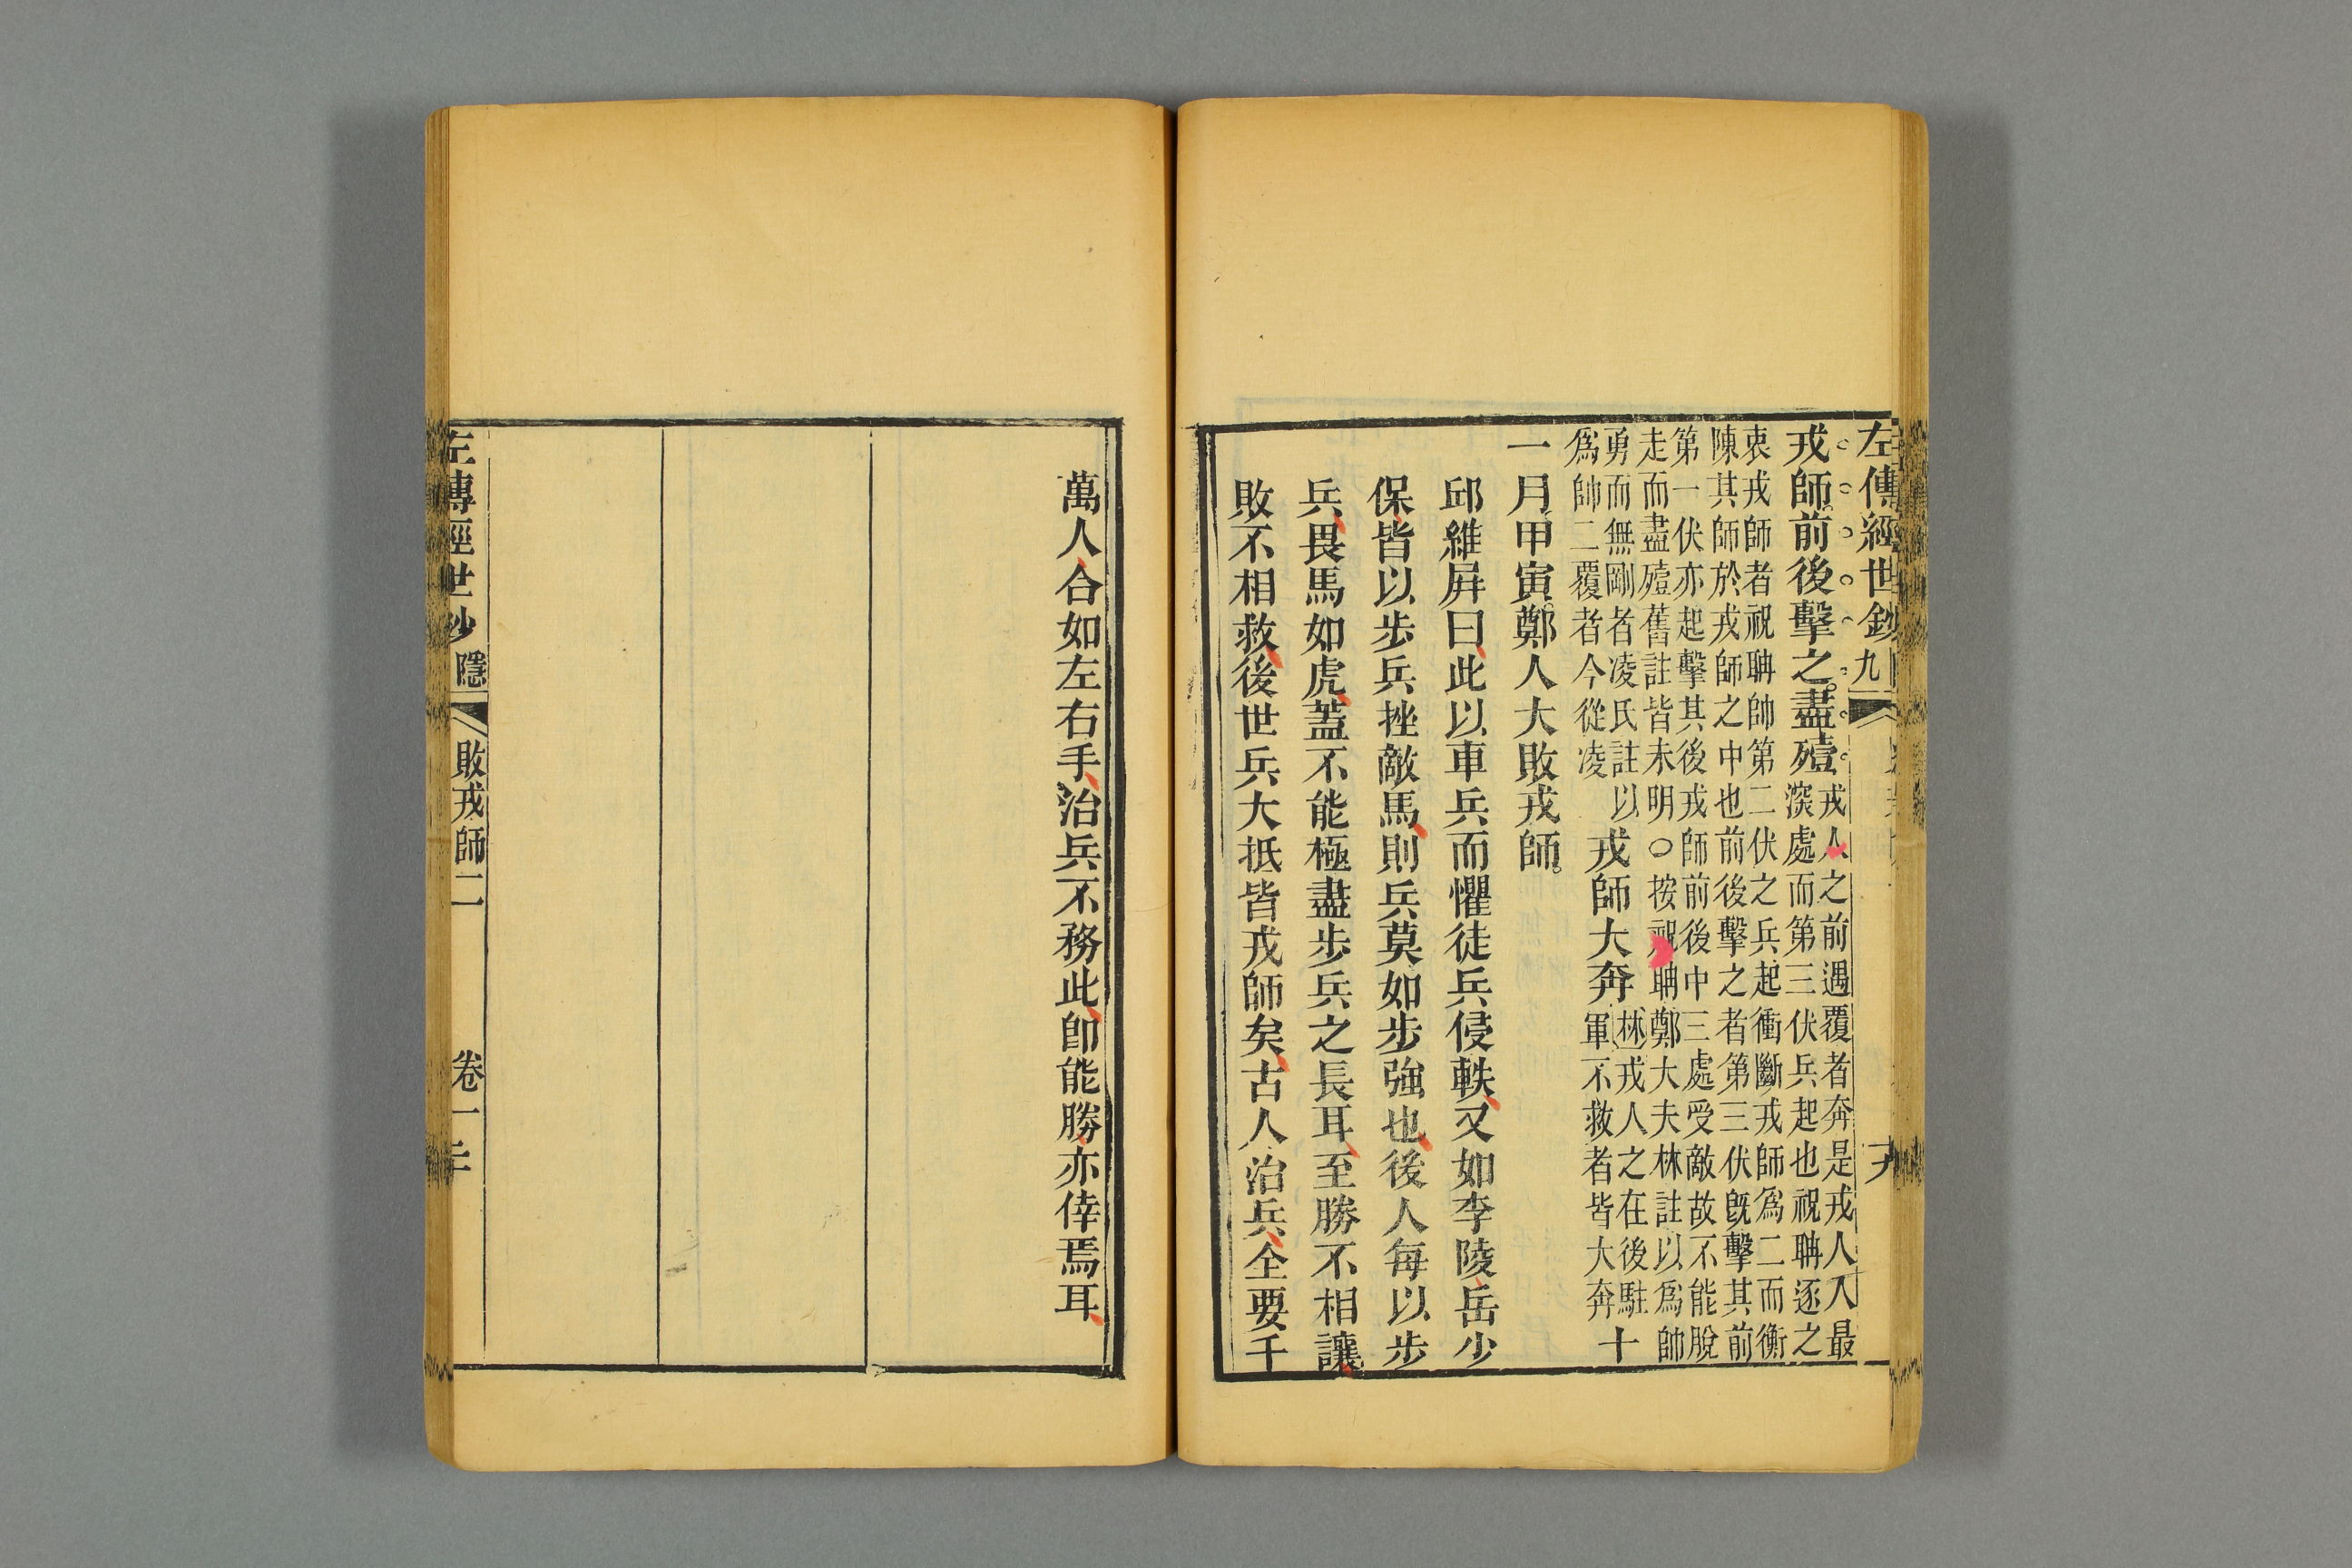 左傳經世鈔
戎師前後擊之盡殪
戎人之前遇覆者奔是戎人入最
深處而第三伏兵起也祝聃逐之
衷戎師者祝聃帥第二伏之兵起衝斷戎師爲二而衡
陳其師於戎師之中也前後擊之者第三伏旣擊其前
第一伏亦起擊其後戎師前後中三處受敵故不能脫
走而盡殪舊註皆未明○按祝聃鄭大夫林註以爲帥
勇而無剛者凌氏註以
爲帥二覆者今從凌
戎師大奔
林戎人之在後駐
軍不救者皆大奔
十
一月甲寅鄭人大敗戎師
邱維屏曰此以車兵而懼徒兵侵軼又如李陵岳少
保皆以步兵挫敵馬則兵莫如步強也後人每以步
兵畏馬如虎蓋不能極盡步兵之長耳至勝不相讓
敗不相救後世兵大抵皆戎師矣古人治兵全要千
萬人合如左右手治兵不務此卽能勝亦倖焉耳
左傳經世鈔
隱
敗戎師二
卷一